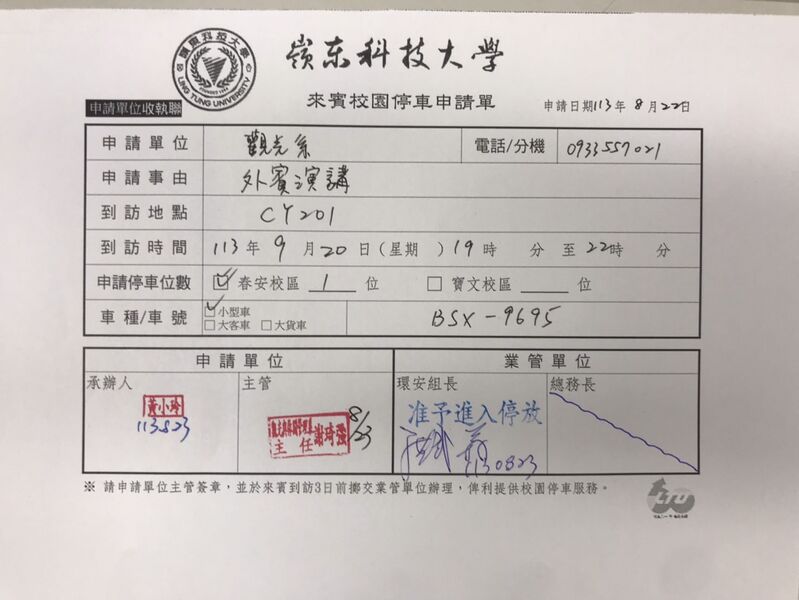 嶺東科技大學
LING TUNG UNIVERSITY
嶺東科技大學
來賓校園停車申請單
申請單位收執聯
申請日期113年8月22日
申請單位 觀光系 電話/分機 0933557021
申請事由 外賓演講
到訪地點 CY201
到訪時間 113年9月20日(星期 )19時 分至22時 分
申請停車位數 ☑春安校區 1 位 □寶文校區 位
車種/車號 ☑小型車 BSX-9695
□大客車 □大貨車
申請單位 業管單位
承辦人 主管 環安組長 總務長
黃小玲
113823
主任 謝琦強
8/23
准予進入停放
1130823
※ 請申請單位主管簽章,並於來賓到訪3日前擲交業管單位辦理,俾利提供校園停車服務。
LTU